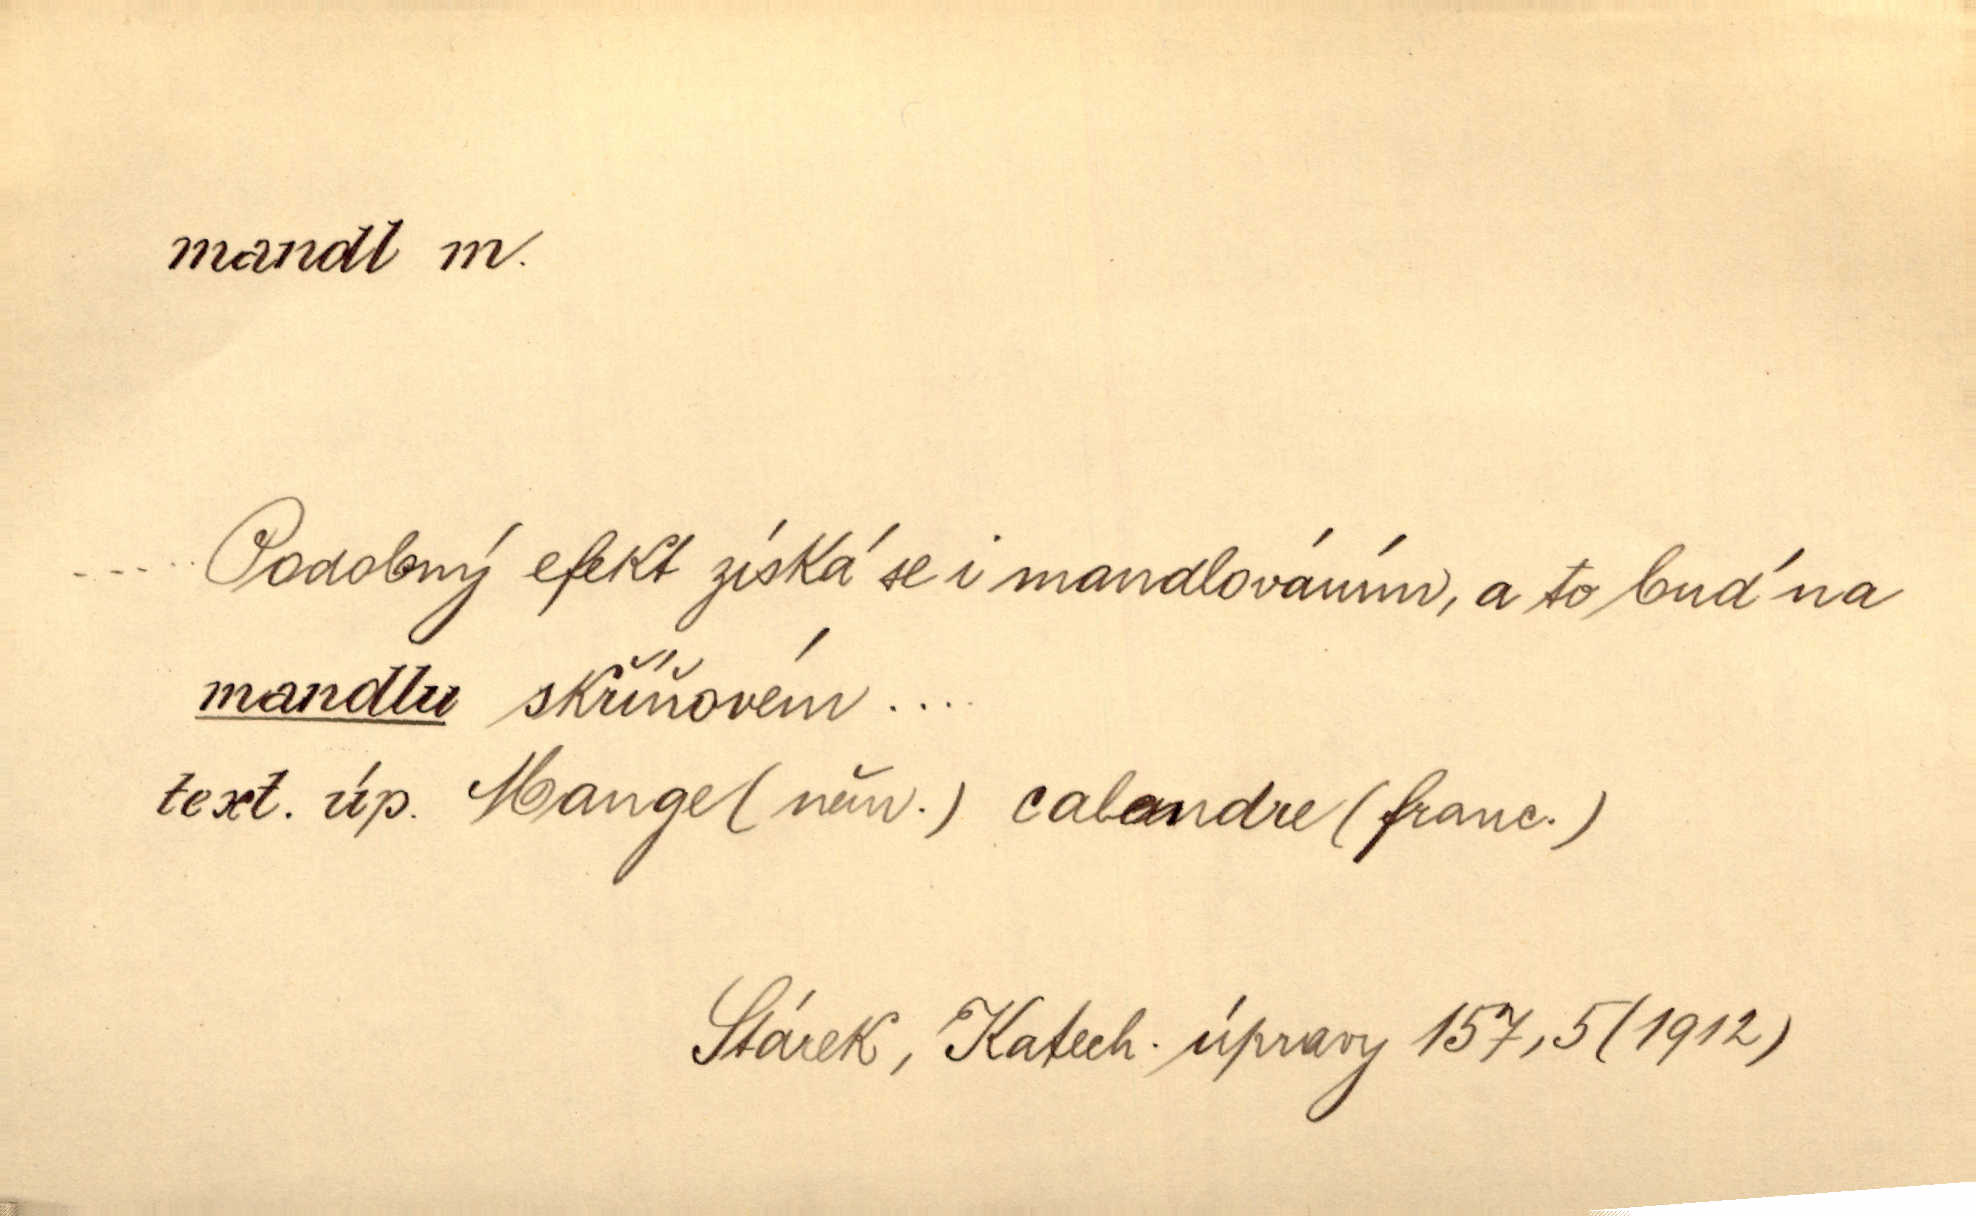 mandl m.
..... Podobný efekt získá se i mandlováním, a to buď na
mandlu skříňovém ....
text. úp. Mange (něm.) calandre (franc.)
Stárek, Katech. úpravy 157, 5 (1912)